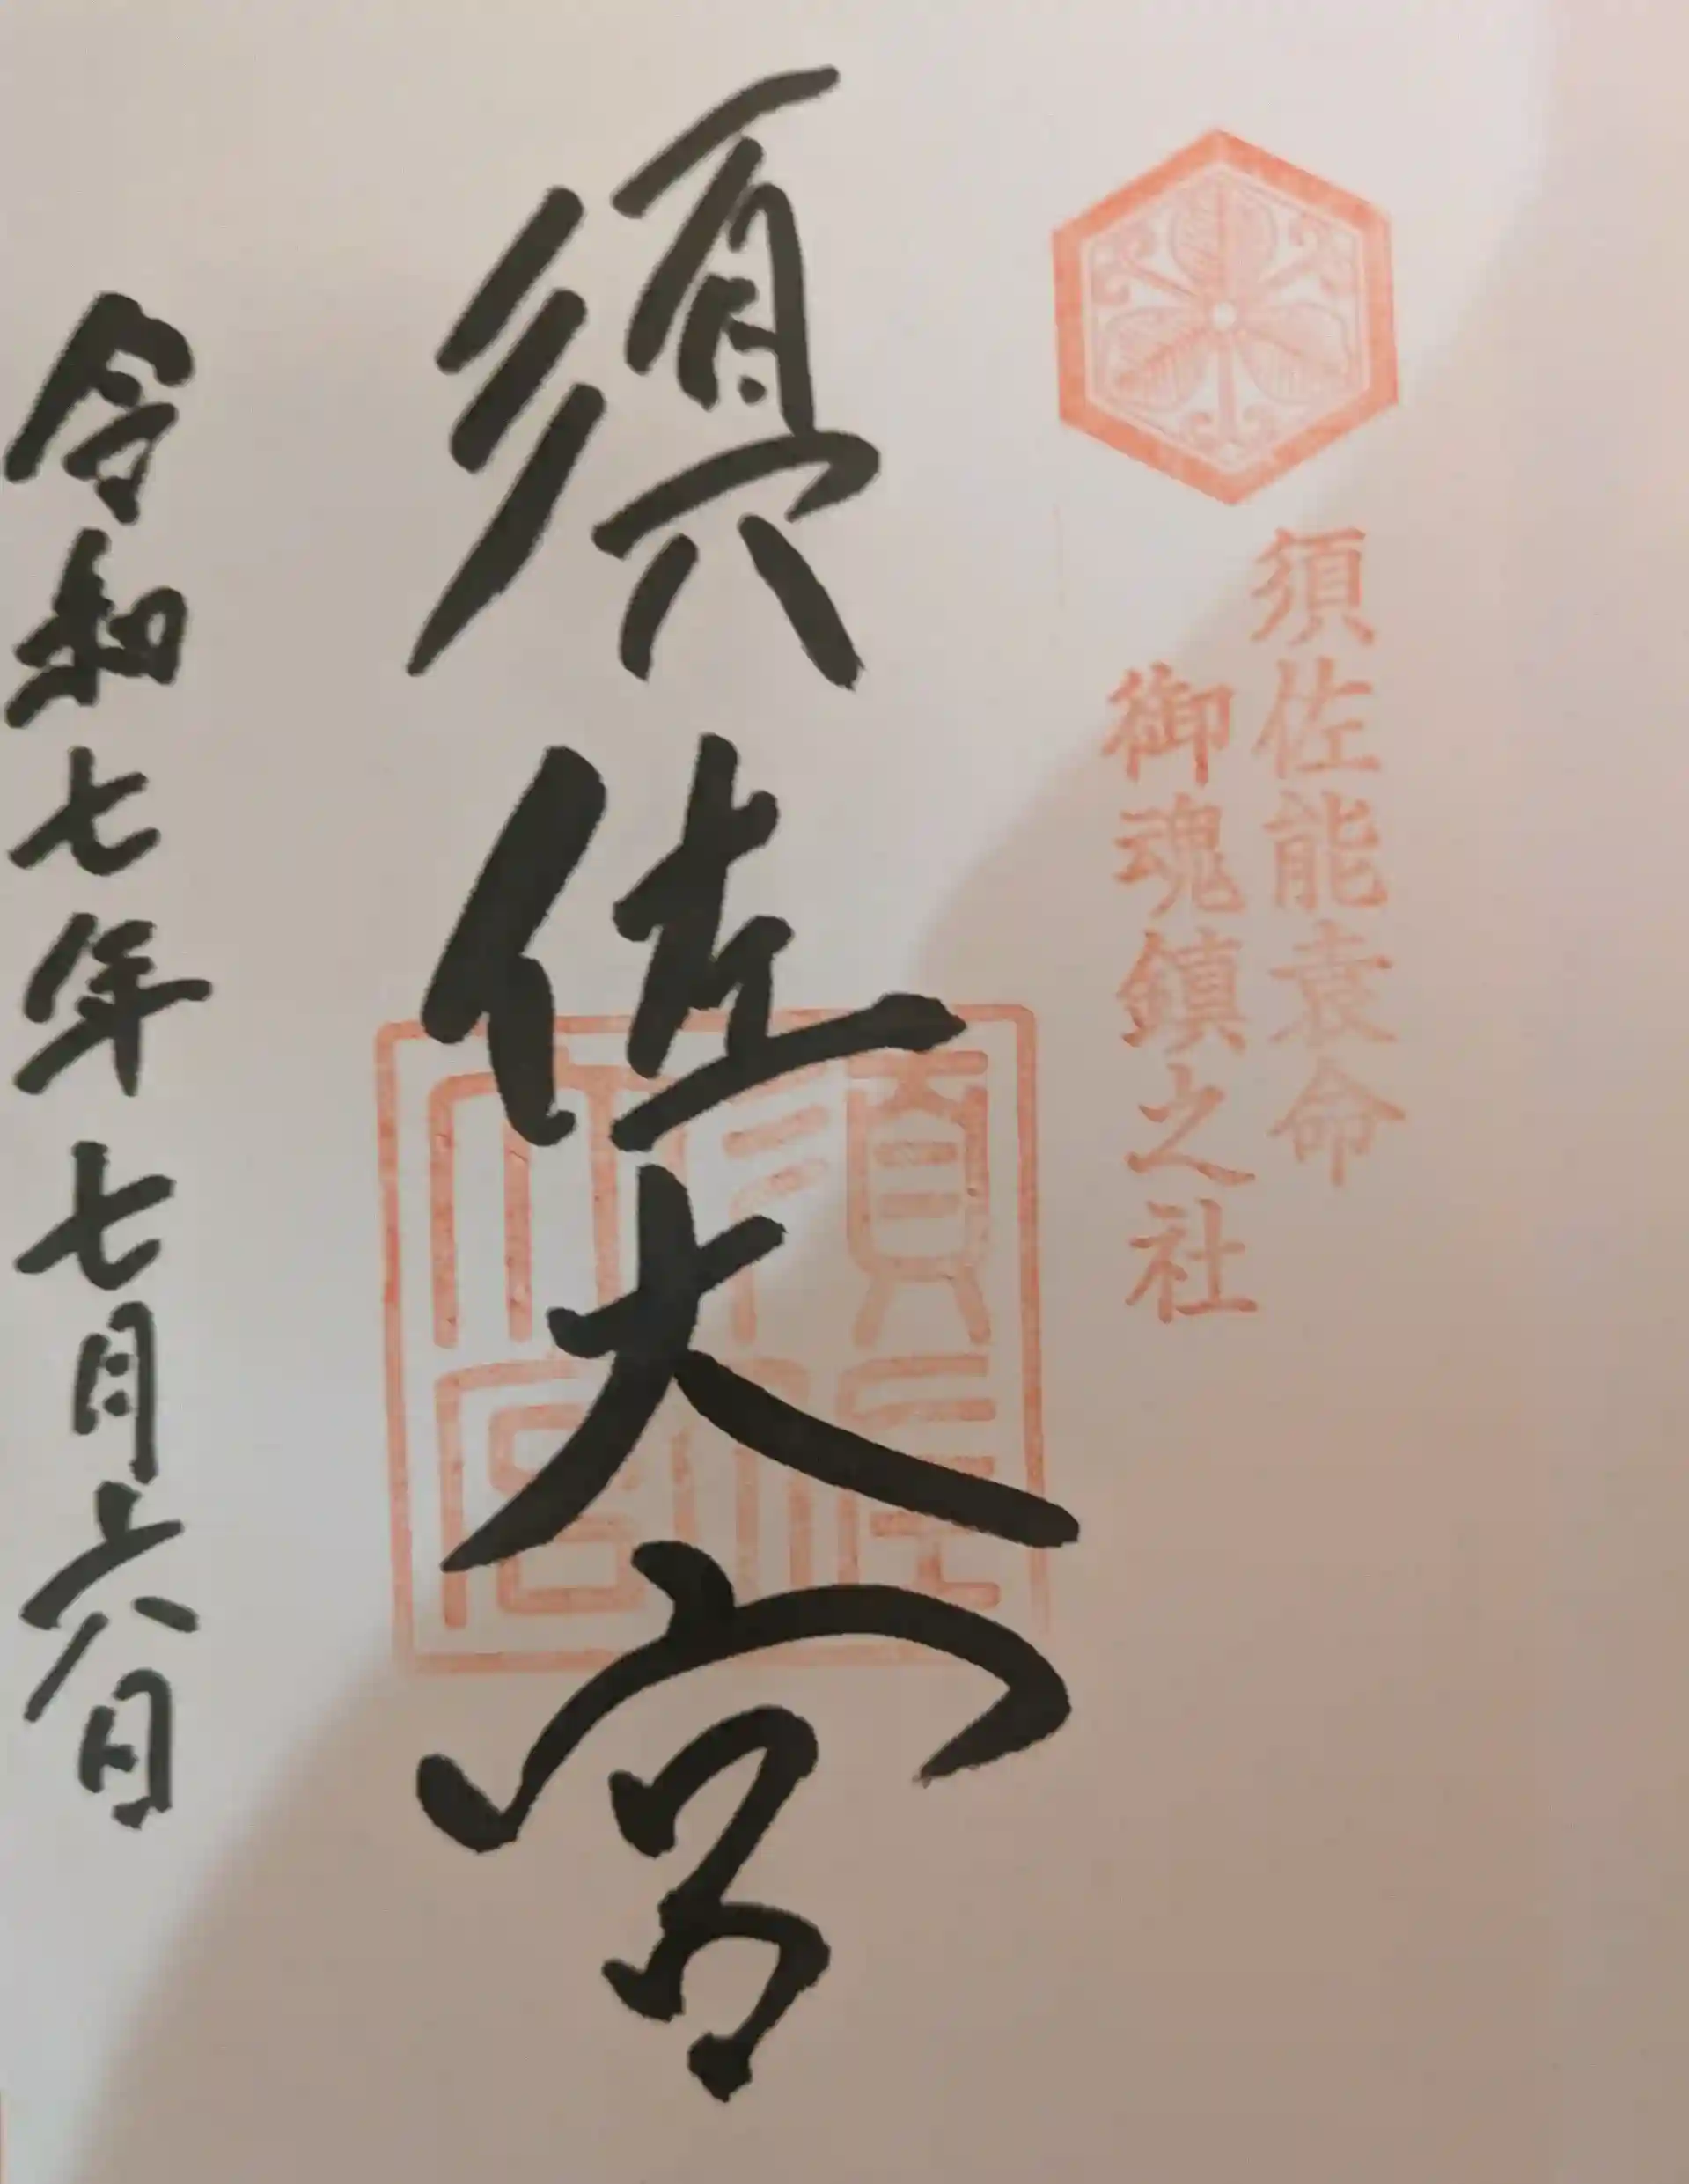 須佐能袁命
御魂鎮之社
須佐大宮
須佐
大宮
令和七年七月六日